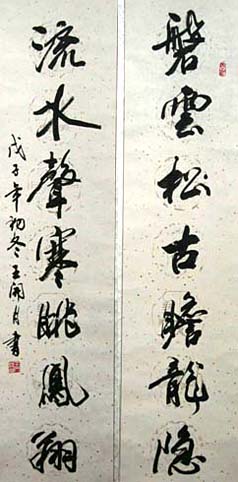 磐雲松古瞻龍隐
流水聲寒眺鳳翔
戊子年初冬王開月書